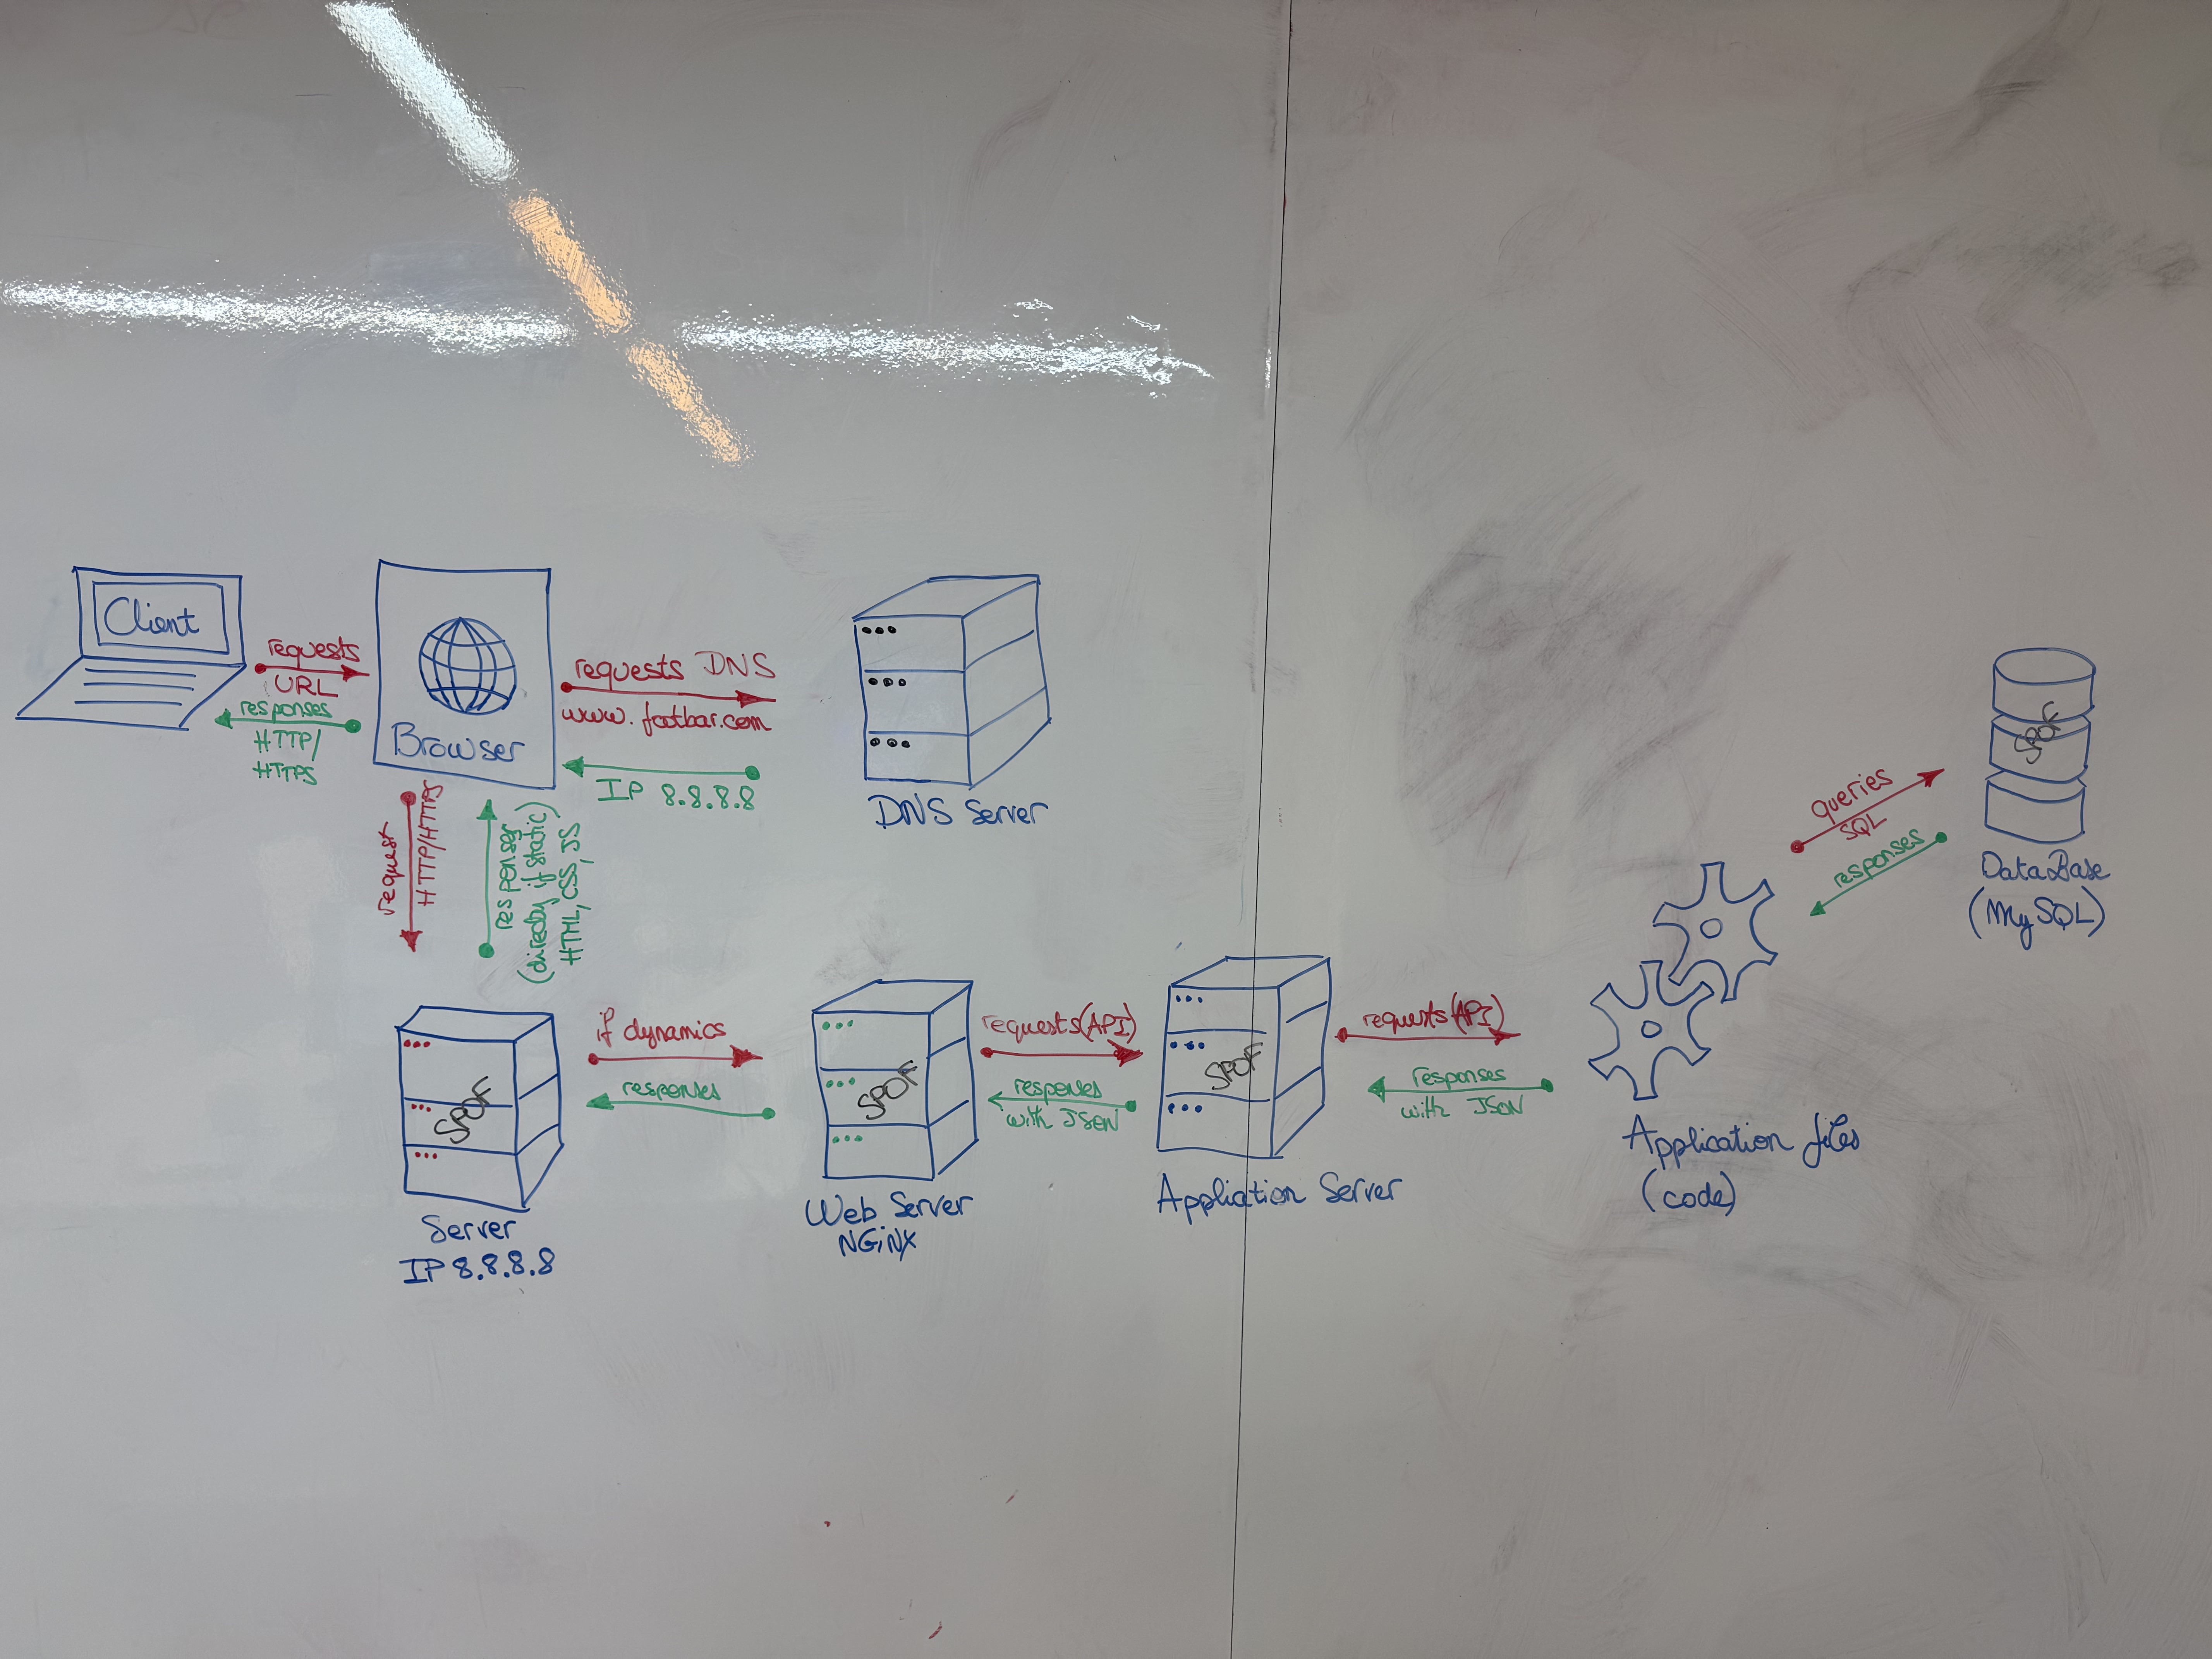 Client
requests
URL
responses
HTTP/
HTTPS
Browser
requests DNS
www.footbar.com
IP 8.8.8.8
DNS Server
request
HTTP/HTTPS
responses
(directly if static)
HTML, CSS, JS
SPOF
Server
IP 8.8.8.8
if dynamics
responses
SPOF
Web Server
NGiNX
requests (API)
responses
with JSON
SPOF
Application Server
requests (API)
responses
with JSON
Application files
(code)
queries
SQL
responses
SPOF
DataBase
(MySQL)